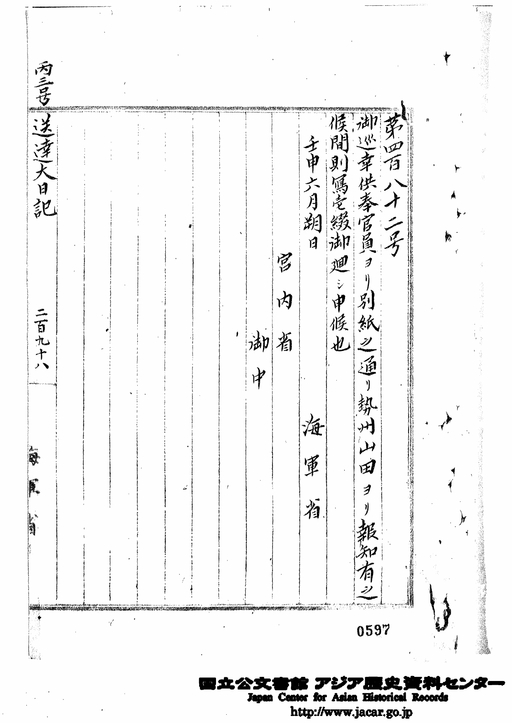 第四百八十二号
御巡幸供奉官員ヨリ別紙之通リ勢州山田ヨリ報知有之
候間則写壱綴御廻シ申候也
壬申六月朔日
海軍省
宮内省
御中
丙三号 送達大日記
二百九十八
海軍省
0597
国立公文書館 アジア歴史資料センター
Japan Center for Asian Historical Records
http://www.jacar.go.jp